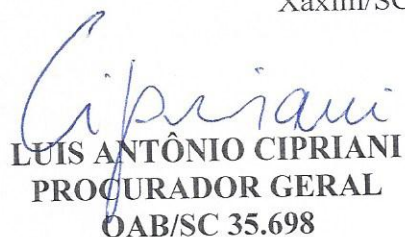 Xaxim/SC
Cipriani
LUIS ANTÔNIO CIPRIANI
PROCURADOR GERAL
OAB/SC 35.698